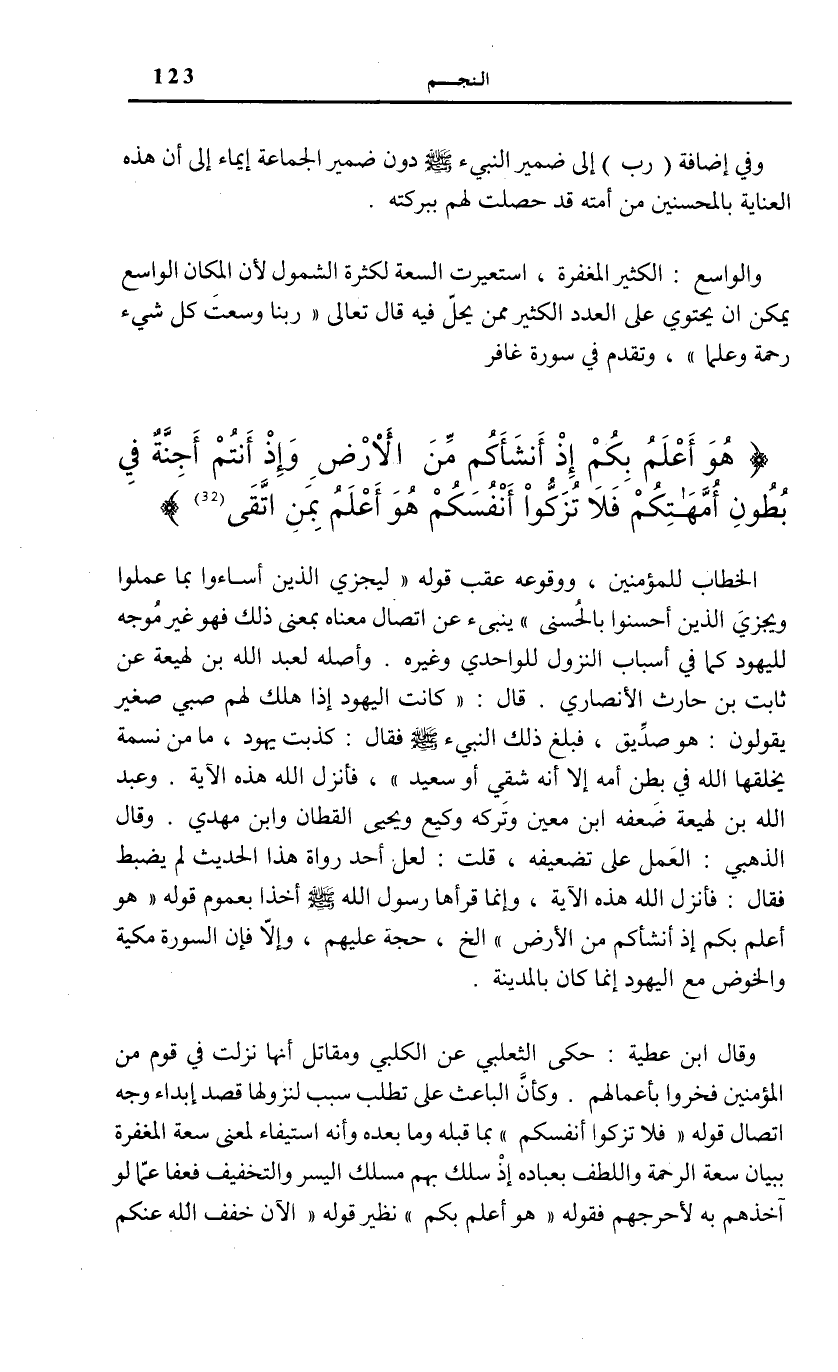 النجــم 123
وفي إضافة ( رب ) إلى ضمير النبيء ﷺ دون ضمير الجماعة إيماء إلى أن هذه
العناية بالمحسنين من أمته قد حصلت لهم ببركته .
والواسع : الكثير المغفرة ، استعيرت السعة لكثرة الشمول لأن المكان الواسع
يمكن ان يحتوي على العدد الكثير ممن يحلّ فيه قال تعالى « ربنا وسعتَ كل شيء
رحمة وعلما » ، وتقدم في سورة غافر
﴿ هُوَ أَعْلَمُ بِكُمْ إِذْ أَنشَأَكُم مِّنَ الْأَرْضِ وَإِذْ أَنتُمْ أَجِنَّةٌ فِي
بُطُونِ أُمَّهَٰتِكُمْ فَلَا تُزَكُّواْ أَنْفُسَكُمْ هُوَ أَعْلَمُ بِمَنِ اتَّقَى (32) ﴾
الخطاب للمؤمنين ، ووقوعه عقب قوله « ليجزي الذين أساءوا بما عملوا
ويجزيَ الذين أحسنوا بالحُسنى » ينبىء عن اتصال معناه بمعنى ذلك فهو غير مُوجه
لليهود كما في أسباب النزول للواحدي وغيره . وأصله لعبد الله بن لهيعة عن
ثابت بن حارث الأنصاري . قال : « كانت اليهود إذا هلك لهم صبي صغير
يقولون : هو صدِّيق ، فبلغ ذلك النبيء ﷺ فقال : كذبت يهود ، ما من نسمة
يخلقها الله في بطن أمه إلا أنه شقي أو سعيد » ، فأنزل الله هذه الآية . وعبد
الله بن لهيعة ضَعفه ابن معين وتَركه وكيع ويحيى القطان وابن مهدي . وقال
الذهبي : العَمل على تضعيفه ، قلت : لعل أحد رواة هذا الحديث لم يضبط
فقال : فأنزل الله هذه الآية ، وإنما قرأها رسول الله ﷺ أخذا بعموم قوله « هو
أعلم بكم إذ أنشأكم من الأرض » الخ ، حجة عليهم ، وإلاّ فإن السورة مكية
والخوض مع اليهود إنما كان بالمدينة .
وقال ابن عطية : حكى الثعلبي عن الكلبي ومقاتل أنها نزلت في قوم من
المؤمنين فخروا بأعمالهم . وكأنَّ الباعث على تطلب سبب لنزولها قصد إبداء وجه
اتصال قوله « فلا تزكوا أنفسكم » بما قبله وما بعده وأنه استيفاء لمعنى سعة المغفرة
ببيان سعة الرحمة واللطف بعباده إذْ سلك بهم مسلك اليسر والتخفيف فعفا عمّا لو
آخذهم به لأحرجهم فقوله « هو أعلم بكم » نظير قوله « الآن خفف الله عنكم